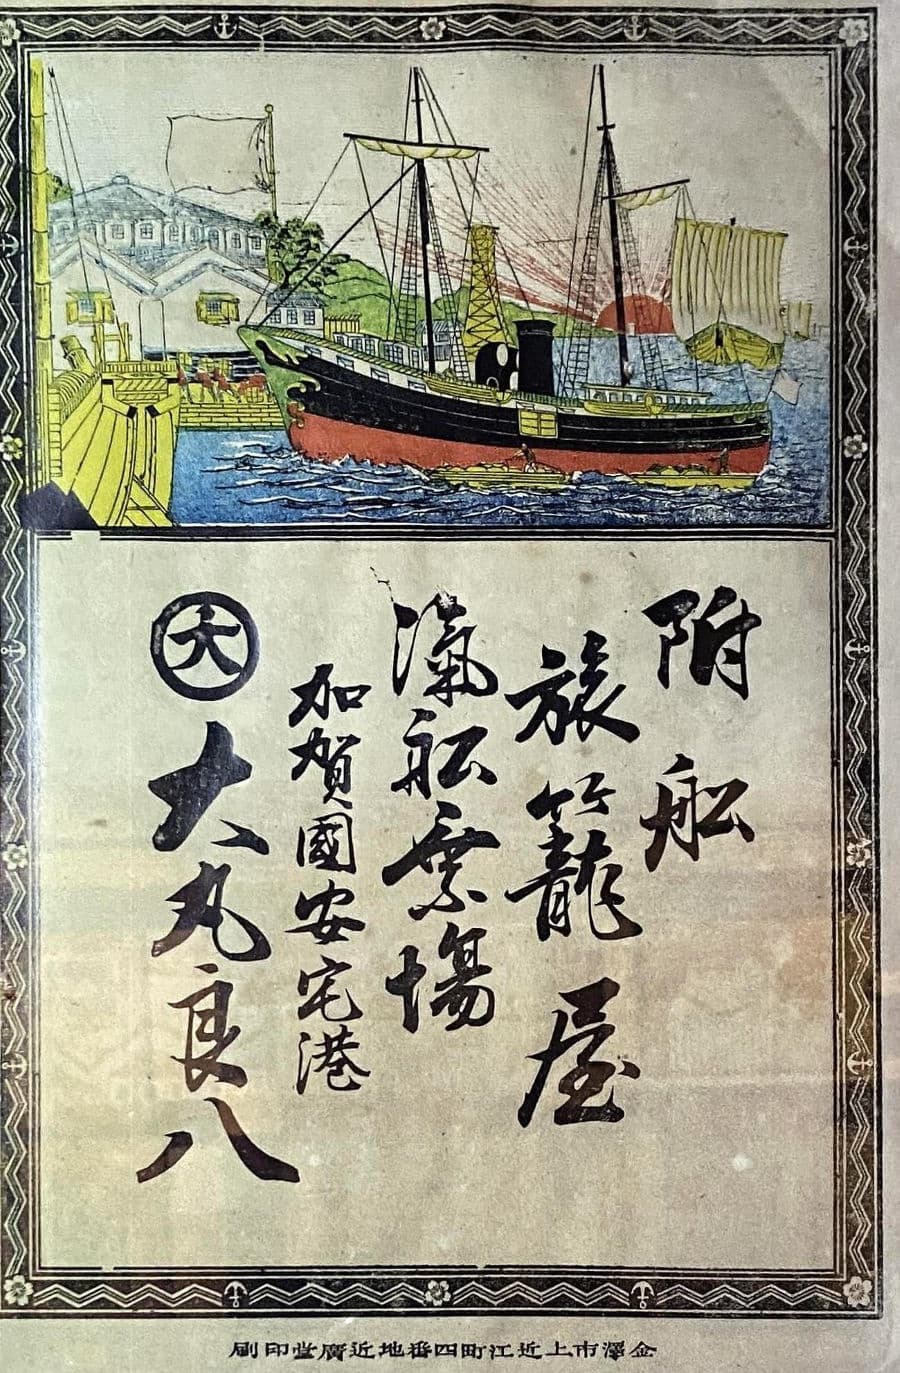 附船
旅籠屋
滊舩乗場
加賀國安宅港
大
大丸良八
金澤市上近江町四番地近廣堂印刷